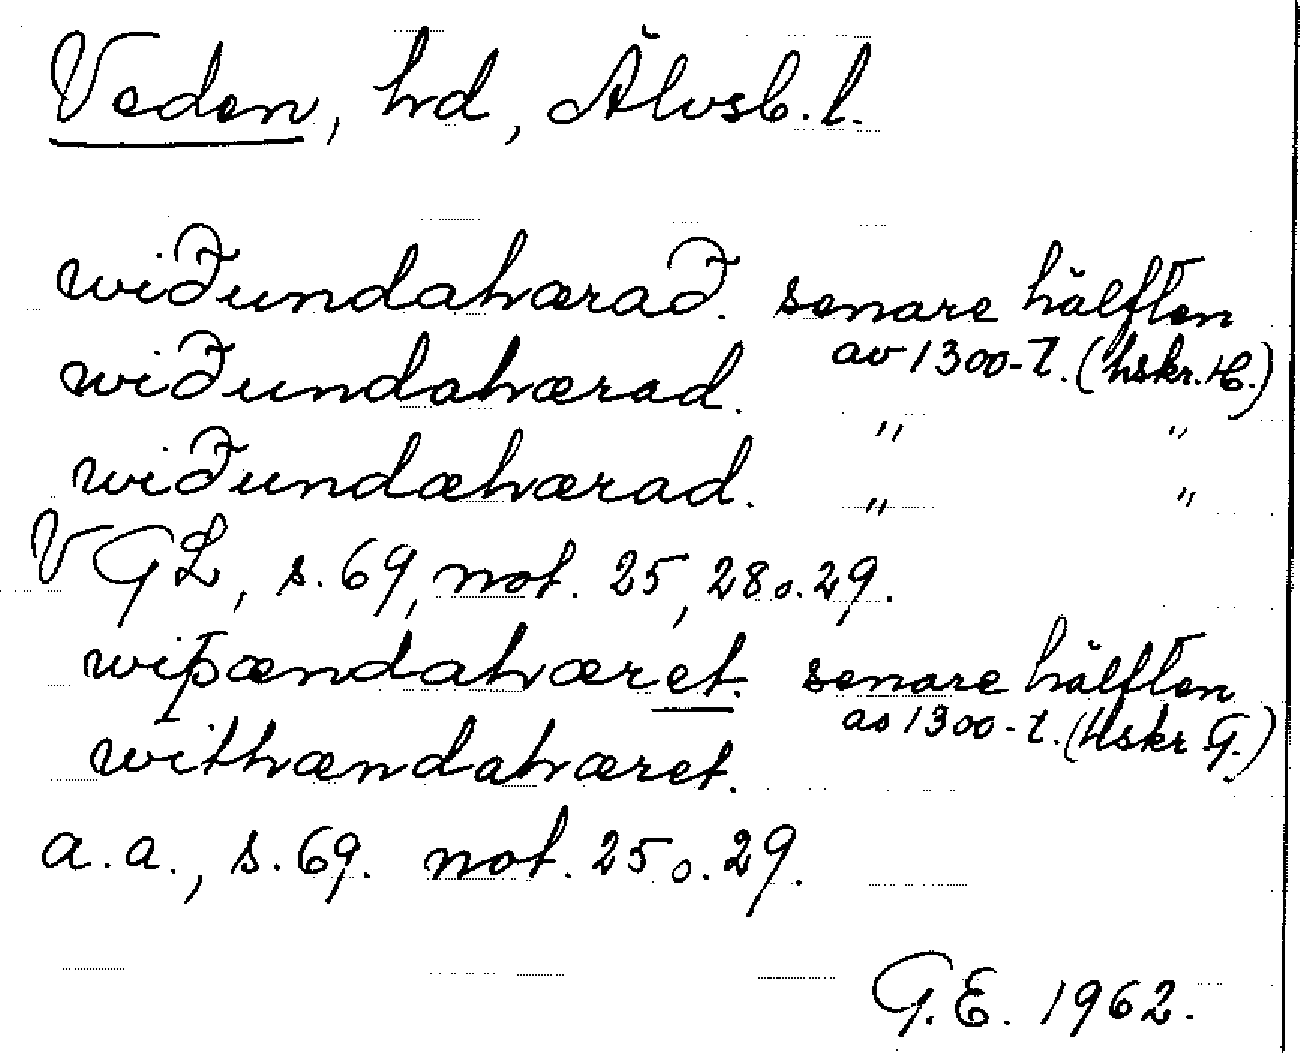 Veden, hd, Älvsb. l.
wiðundahærað. senare hälften
av 1300-t. (hskr. H.)
wiðundahærad. " "
wiðundæhærad. " "
VGL, s. 69, not. 25, 28 o. 29.
wiþændahæret. senare hälften
av 1300-t. (Hskr G.)
withændahæret.
a.a., s. 69. not. 25 o. 29.
G.E. 1962.